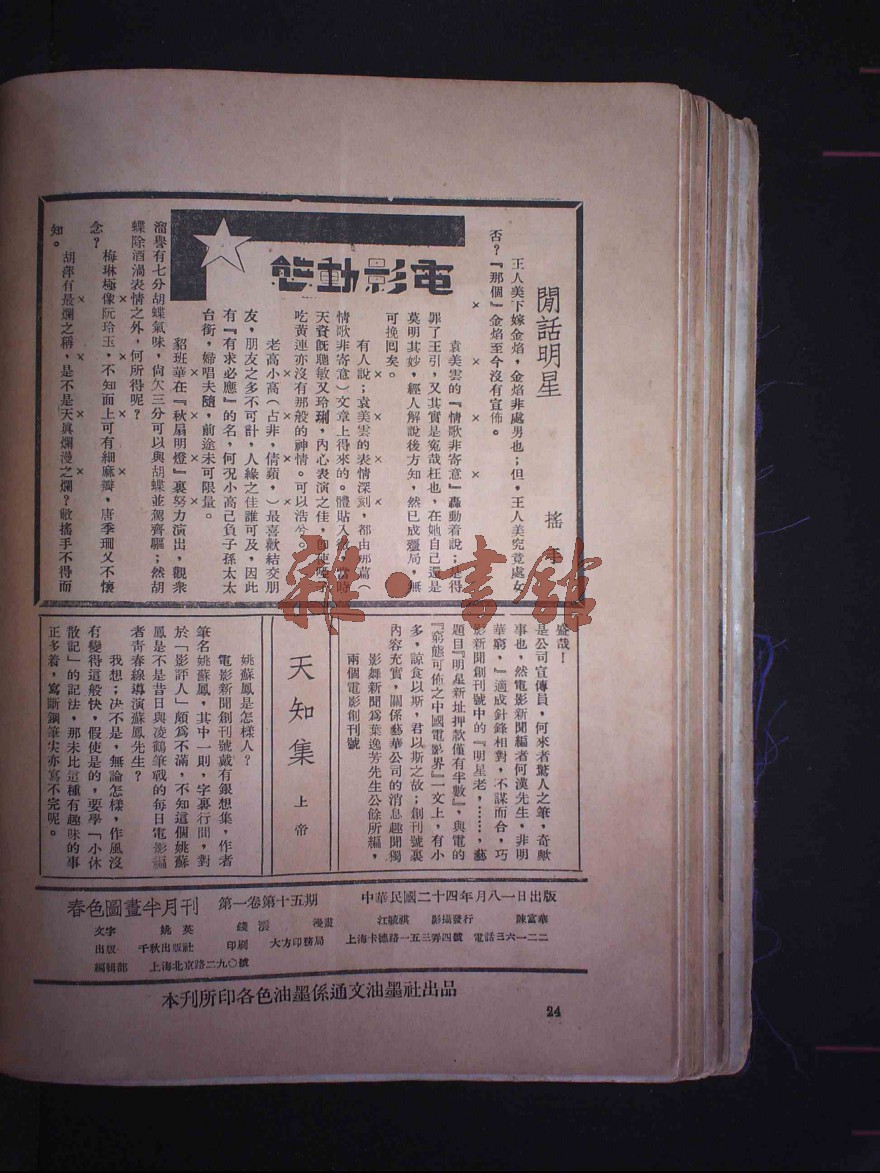 電影動態
閒話明星
搖
王人美下嫁金焰，金焰非處男也；但，王人美究竟處女
否？『那個』金焰至今沒有宣佈。
× × × ×
袁美雲的『情歌非寄意』轟動着說；是得
罪了王引，又其實是寃哉枉也，在她自己還是
莫明其妙，經人解說後方知，然已成殭局，無
可挽囘矣。
有人說；袁美雲的表情深刻，都由那篇（
情歌非寄意）文章上得來的。體貼入微，當時
天資旣聰敏又玲琍，內心表演之佳，卽使啞子
吃黃連亦沒有那般的神情。可以浩兮。
× × × ×
老高小高（占非，倩蘋，）最喜歡結交朋
友，朋友之多不可計，人緣之佳誰可及，因此
有『有求必應』的名，何況小高己負子孫太太
台銜，婦唱夫隨，前途未可限量。
× × × ×
貂班華在『秋扇明燈』裏努力演出，觀衆
溜譽有七分胡蝶氣味，尙欠三分可以與胡蝶並駕齊驅；然胡
蝶除酒渦表情之外，何所得呢？
× × × ×
梅琳極像阮玲玉，不知面上可有細麻瓣，唐季珊又不懷
念？
× × × ×
胡萍有最爛之稱，是不是天眞爛漫之爛？敝搖手不得而
知。
盛哉！
是公司宣傳員，何來者驚人之筆，奇歟
事也，然電影新聞編者何漢先生，非明
華窮，』適成針鋒相對，不謀而合，巧
影新聞創刊號中的『明星老，……，藝
題目『明星新址押款僅有半數』，與電的
『窮態可佈之中國電影界』一文上，有小
多，諒食以斯，君以斯之故；創刊號裏
內容充實，關係藝華公司的消息趣聞獨
影舞新聞爲葉逸芳先生公餘所編，
兩個電影創刊號
天知集
上帝
姚蘇鳳是怎樣人？
電影新聞創刊號戴有銀想集，作者
筆名姚蘇鳳，其中一則，字裏行間，對
於「影評人」頗爲不滿，不知這個姚蘇
鳳是不是昔日與凌鶴筆戰的每日電影編
者靑春線導演蘇鳳先生？
我想；決不是，無論怎樣，作風沒
有變得這般快，假使是的，要學「小休
散記」的記法，那末比這種有趣味的事
正多着，寫斷鋼筆尖亦寫不完呢。
春色圖畫半月刊 第一卷第十五期 中華民國二十四年月八一日出版
文字 姚英 錢 漫畫 江毓祺 影攝發行 陳富華
出版 千秋出版社 印刷 大方印務局 上海卡德路一五三弄四號 電話三六一二二
編輯部 上海北京路二九〇號
本刋所印各色油墨係通文油墨社出品
24
雜·書館